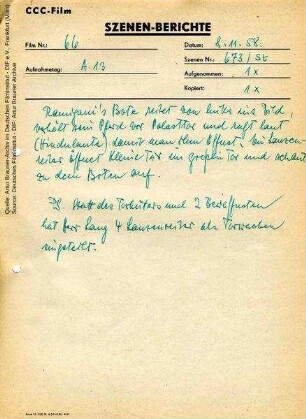 CCC-Film
SZENEN-BERICHTE
Film Nr.: 66
Datum: 8.11.58.
Aufnahmetag: A 13
Szenen Nr.: 673/SE
Aufgenommen: 1x
Kopiert: 1x
Ramigani's Bote reitet von links ins Bild,
verhält sein Pferd vor Palasttor und ruft laut
(Hindulaute) damit man ihm öffnet. Ein Lanzen-
reiter öffnet kleine Tür im großen Tor und schaut
zu dem Boten auf.
Statt des Torhüters und 2 Bewaffneten
hat Herr Lang 4 Lanzenreiter als Torwachen
eingeteilt.
Quelle: Artur Brauner-Archiv im Deutschen Filminstitut - DIF e.V., Frankfurt (Main)
Source: Deutsches Filminstitut - DIF: Artur Brauner Archive